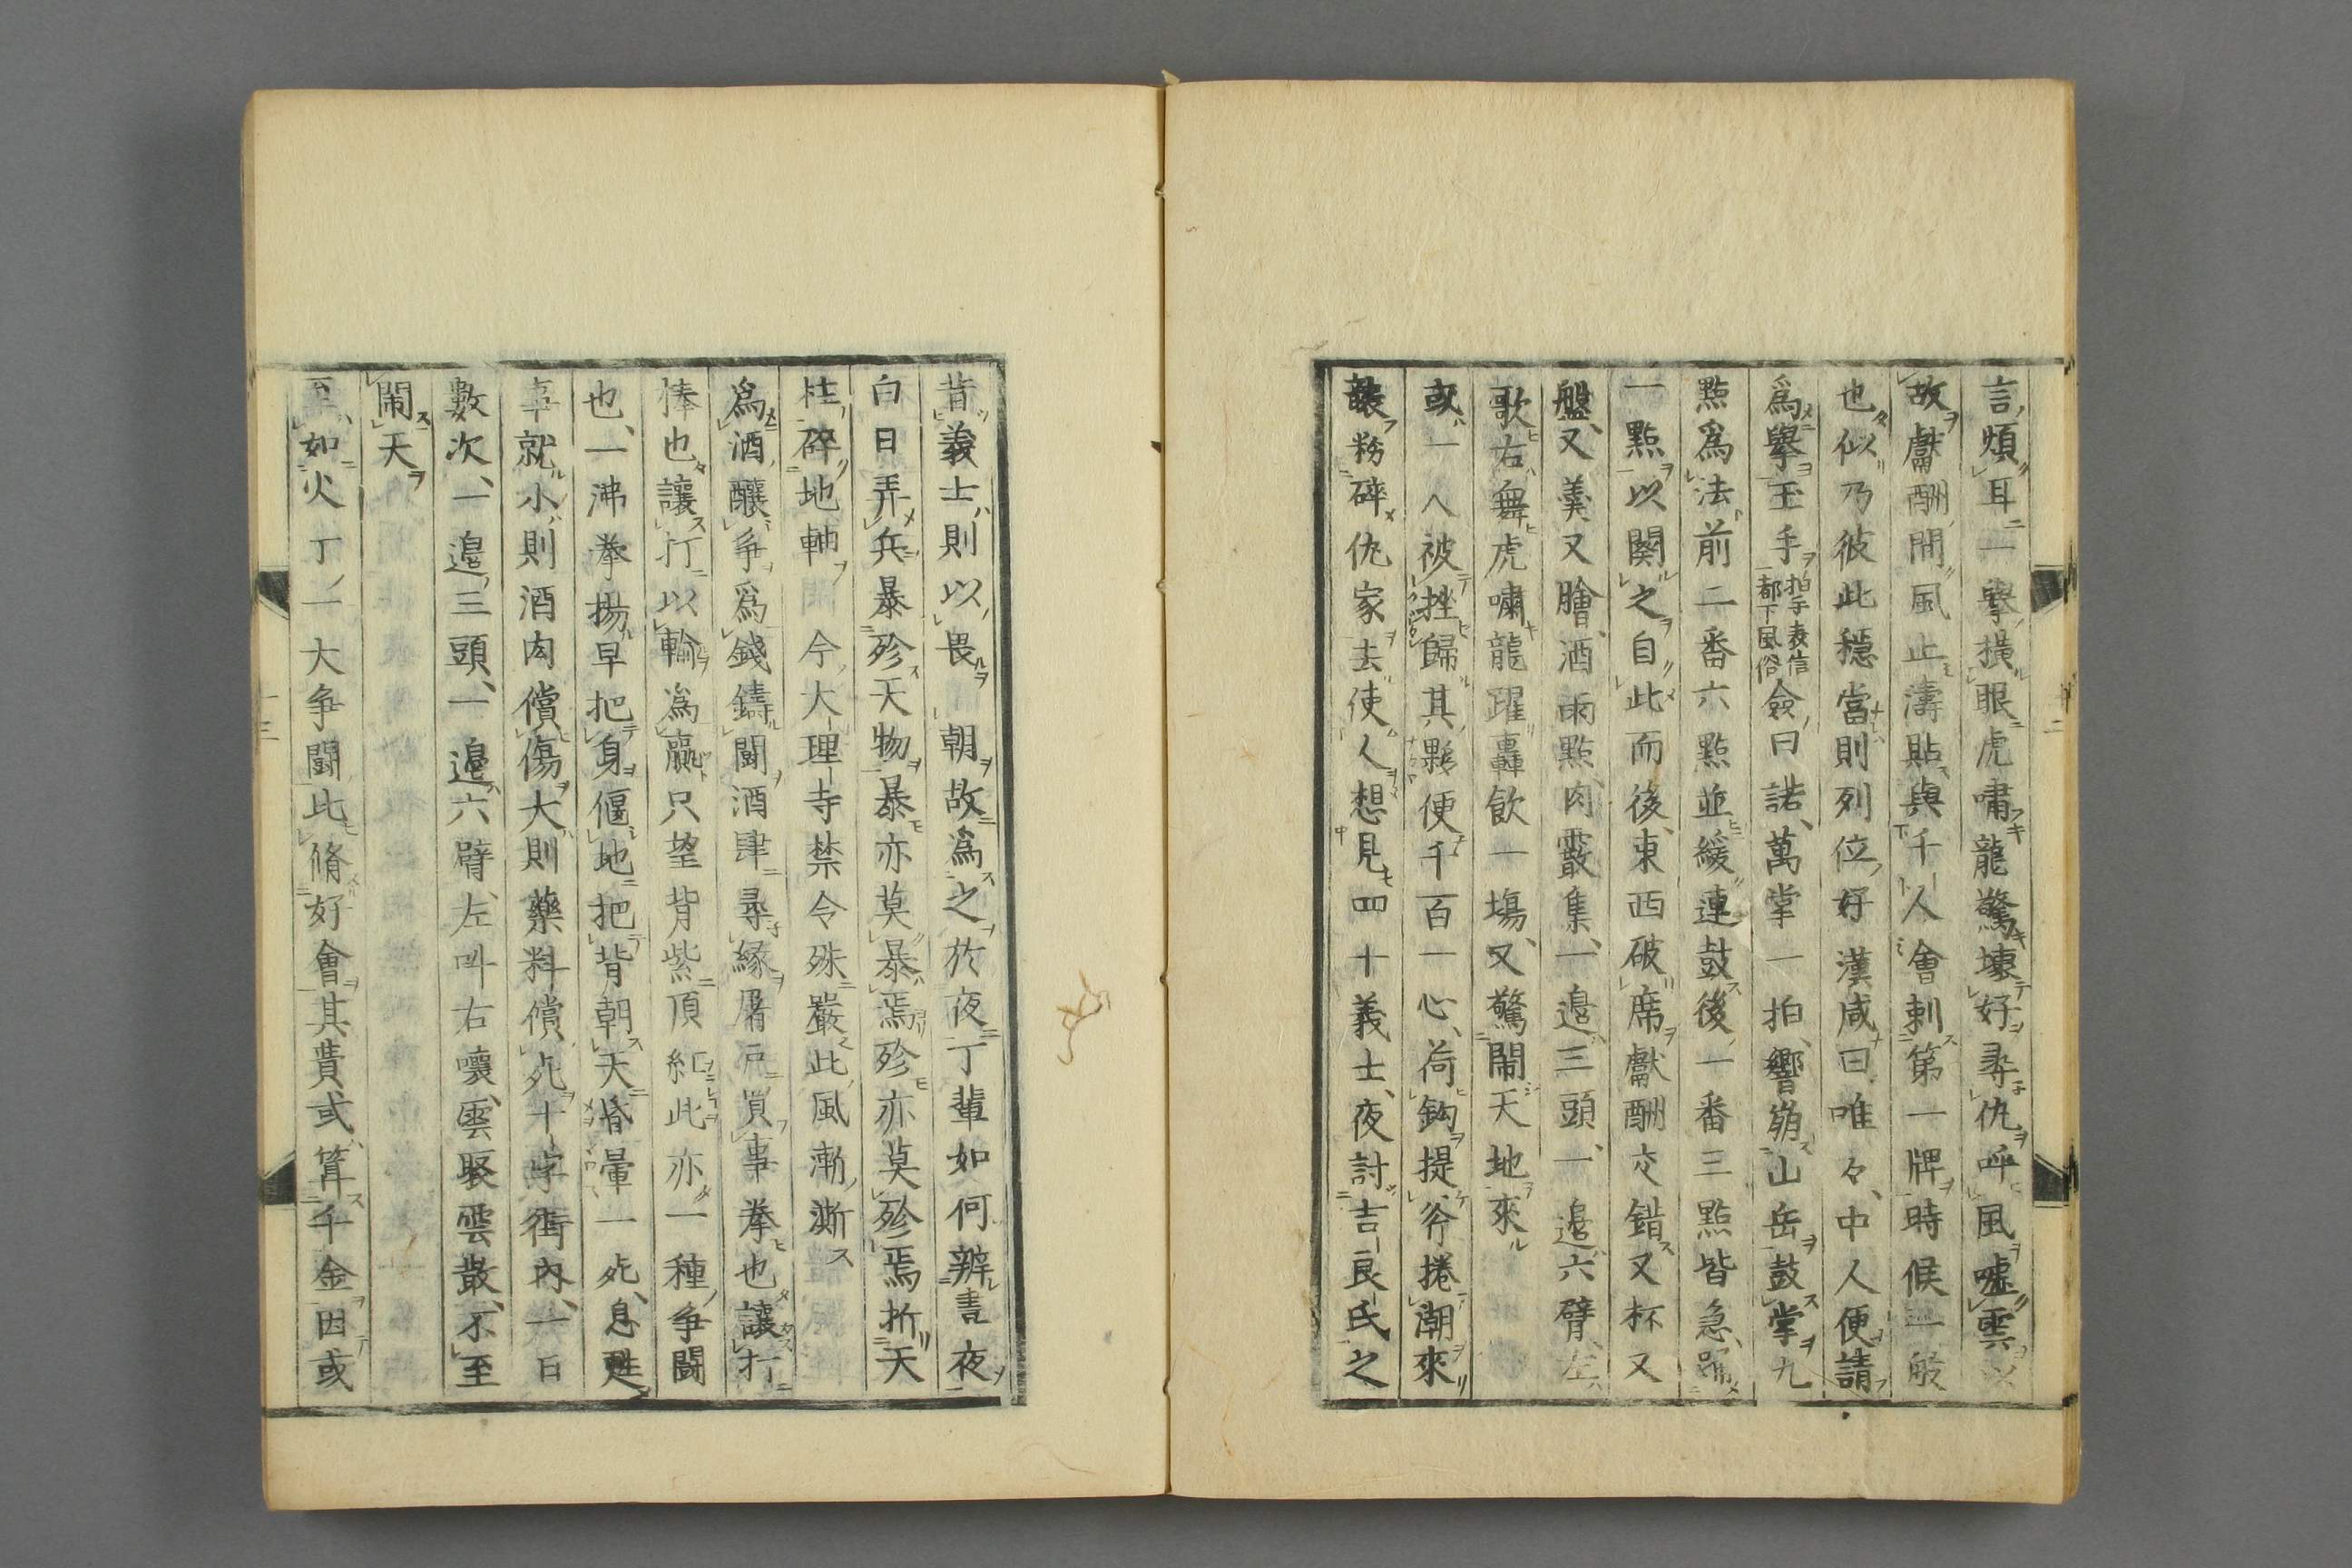 言煩耳一擧撗眼虎嘯龍驚壊好尋仇呼風嘘雲以
故獻酬間風止濤貼與千人會剌第一牌時候一般
也似乃彼此穩當則列位好漢咸曰唯々、中人便請
爲擧玉手拍手表信都下風俗僉曰諾、萬掌一拍、響崩山岳鼓掌九
點爲法前二番六點並緩連鼓後一番三點皆急、
一點以関之自此而後、東西破席獻酬交錯又杯又
盤、又羹又膾、酒雨點、肉霰集、一邉三頭、一邉六臂、左
歌右舞虎嘯龍躍轟飲一塲、又驚鬧天地來
或一人被挫歸其夥便千百一心、荷鈎提斧捲潮來
襲務碎仇家去使人想見四十義士、夜討吉良氏之
昔義士則以畏朝故爲之於夜丁輩如何辨晝夜
白日弄兵暴殄天物暴亦莫暴焉殄亦莫殄焉折天
柱碎地軸今大理寺禁令殊嚴此風漸澌
爲酒釀爭爲錢鑄鬪酒肆尋縁屠戸買事拳也讓打
棒也讓打以輸爲贏只望背紫頂紅此亦一種爭鬪
也、一沸拳揚早把身偃地把背朝天昏暈一死、息甦
事就小則酒肉償傷大則藥料償死十字街内、一日
數次、一邉三頭、一邉六臂、左叫右嚷、雲聚雲散、不至
鬧天
如火丁一大爭鬪比脩好會其費或算千金因或
十二
十三